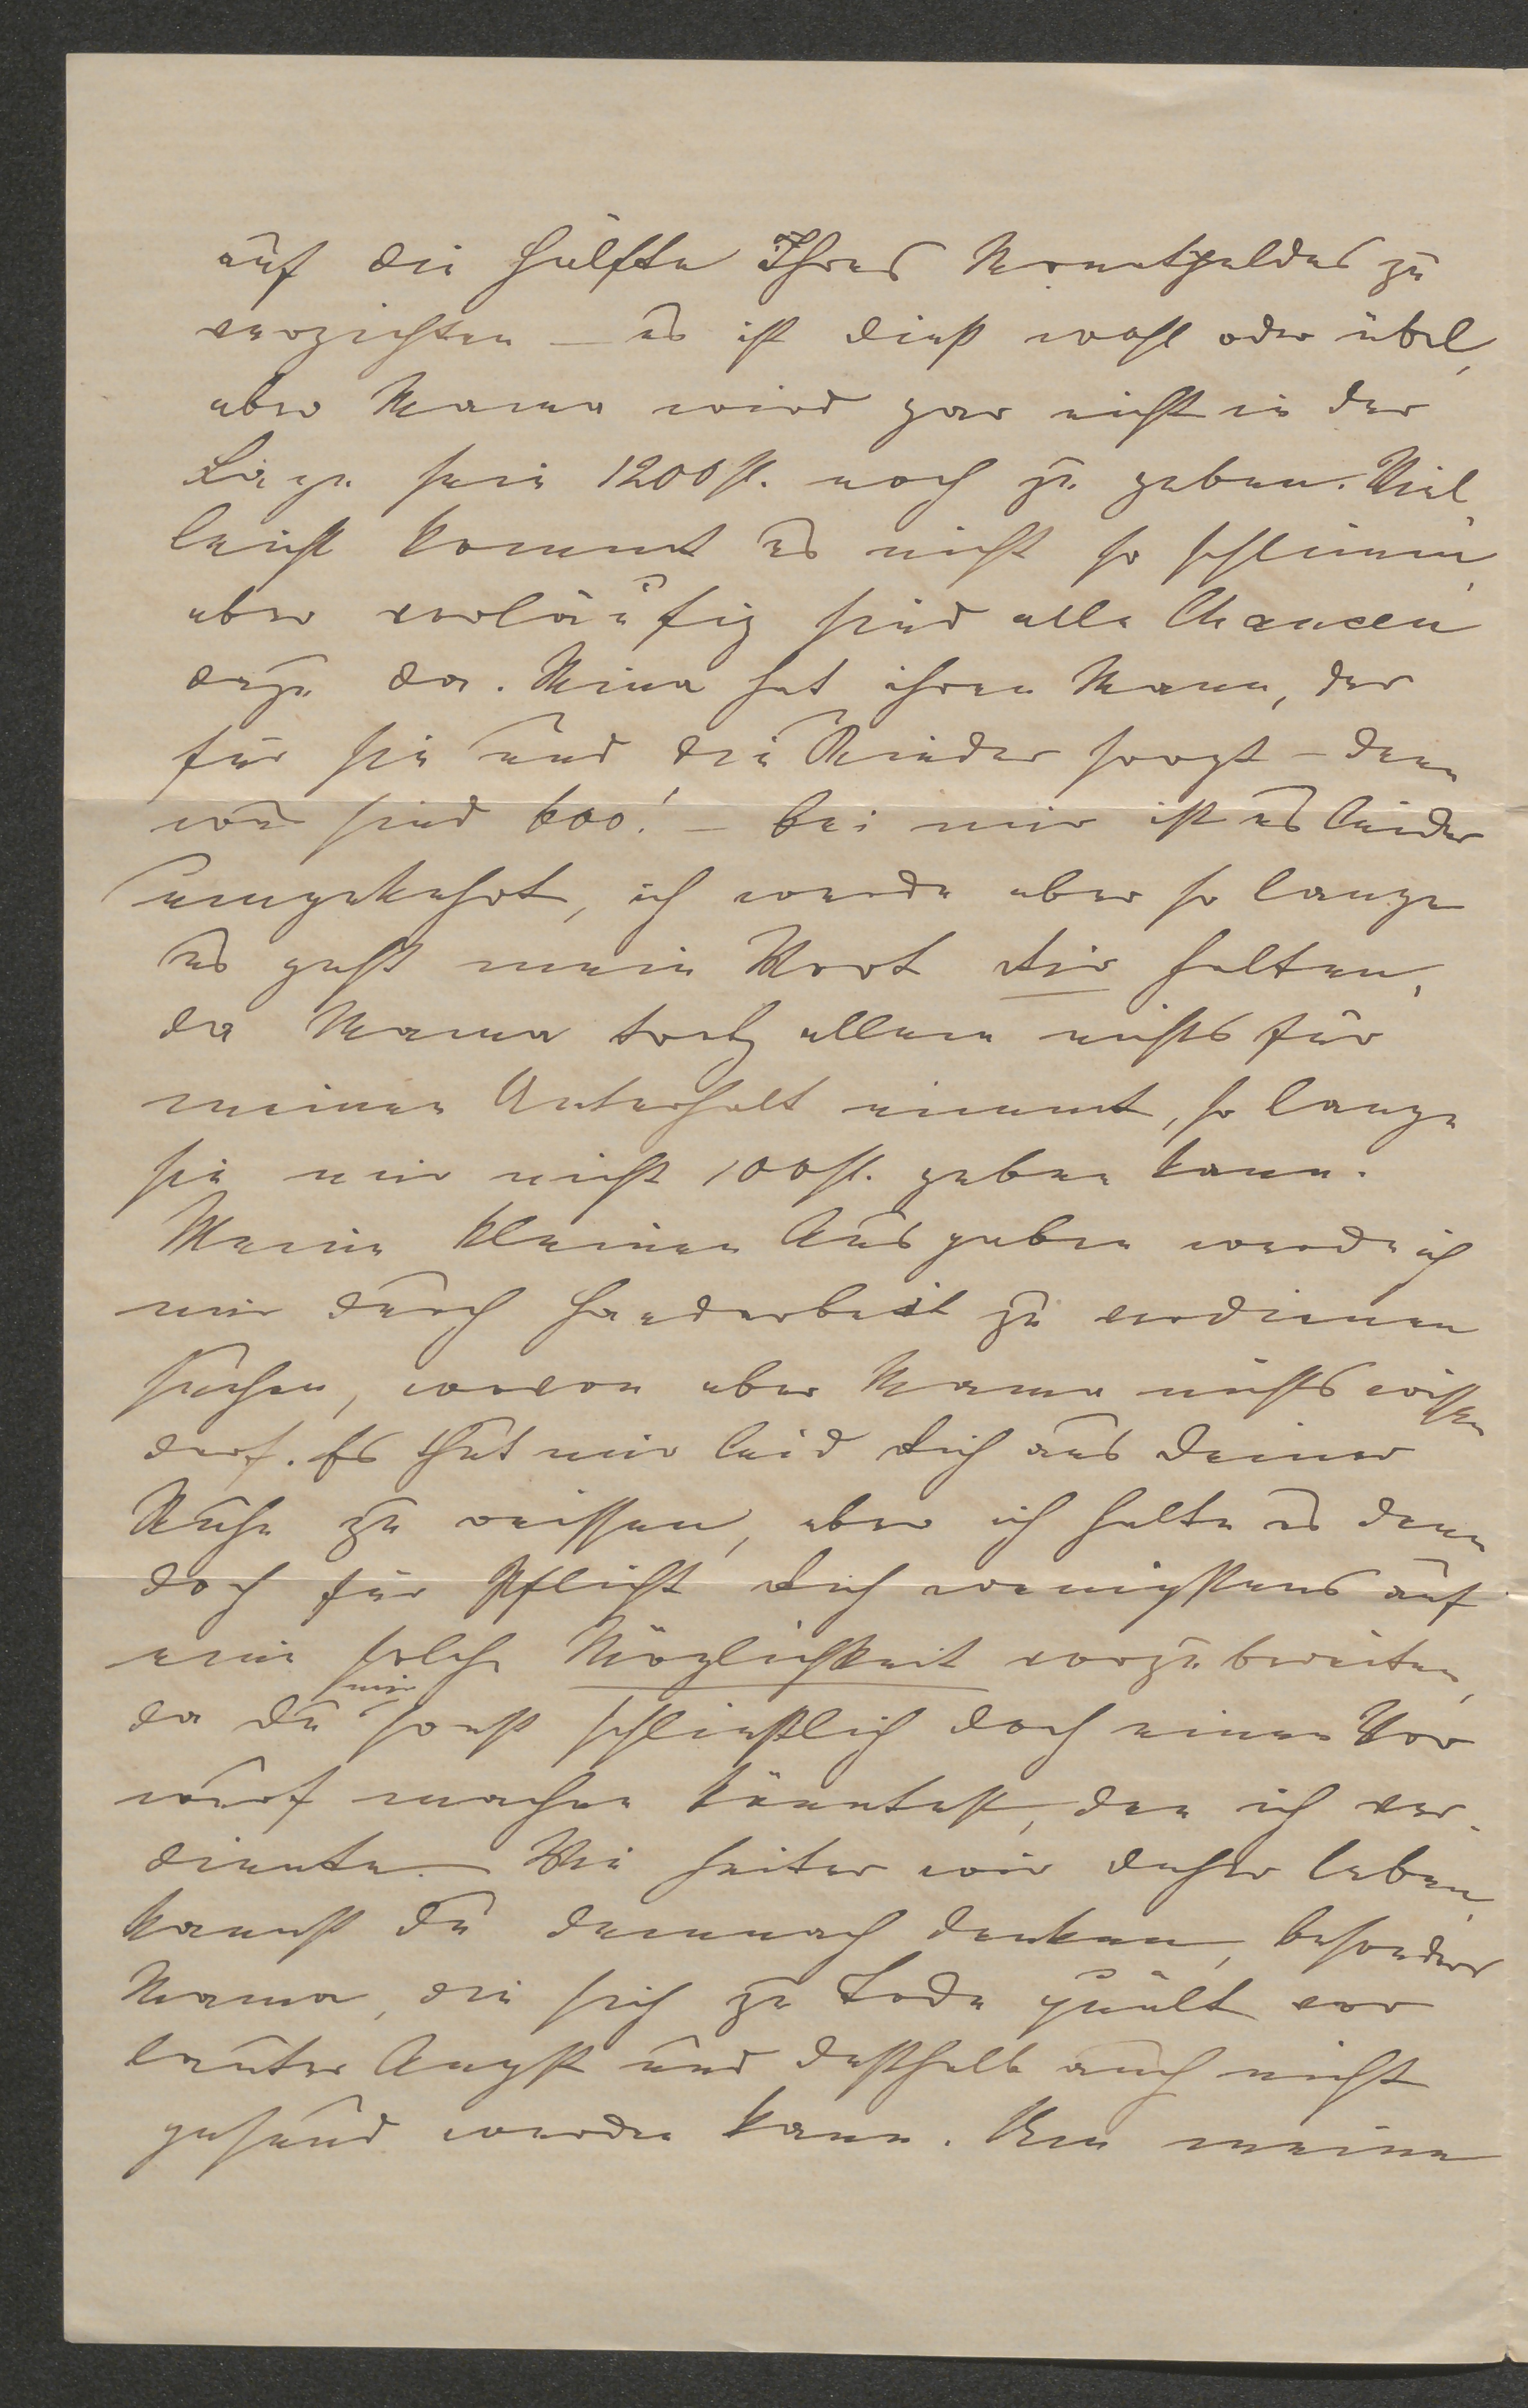 auf die Hälfte Ihres Monatgeldes zu
verzichten — es ist dieß wohl oder übel,
aber Mama wird gar nicht in der
Lage sein 1200 fl. noch zu geben. Viel
leicht kommt es nicht so schlimm,
aber vorläufig sind alle Chancen
dazu da. Mina hat ihren Mann, der
für sie und die Kinder sorgt – denn
was sind 600! – bei mir ist es leider
umgekehrt, ich werde aber so lange
es geht mein Wort Dir halten,
da Mama trotz allem nichts für
meinen Unterhalt nimmt, so lange
sie mir nicht 100 fl. geben kann.
Meine kleinen Ausgaben werde ich
mir durch Handarbeit zu verdienen
suchen, wovon aber Mama nichts wissen
darf. Es thut mir leid Dich aus Deiner
Ruhe zu reissen, aber ich halte es denn
doch für Pflicht Dich wenigstens auf
eine solche Möglichkeit vorzubereiten,
da Du mir sonst schließlich doch einen Vor
wurf machen könntest, den ich ver-
diente. Wie heiter wir daher leben,
kannst Du demnach denken, besonders
Mama, die sich zu Tode quält vor
lauter Angst und deßhalb auch nicht
gesund werden kann. Um meine